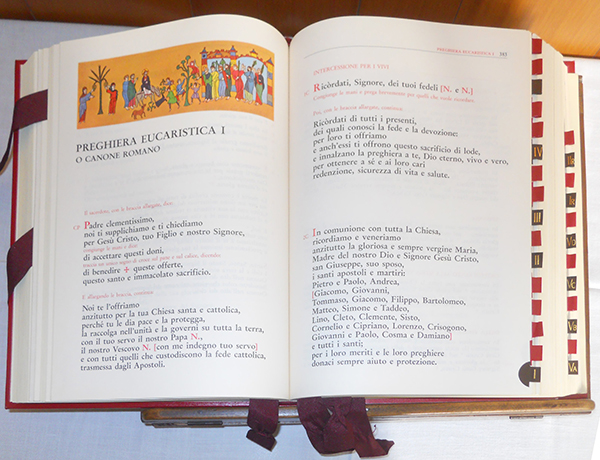 PREGHIERA EUCARISTICA I
O CANONE ROMANO
Il sacerdote, con le braccia allargate, dice:
CP
Padre clementissimo,
noi ti supplichiamo e ti chiediamo
per Gesù Cristo, tuo Figlio e nostro Signore,
congiunge le mani e dice:
di accettare questi doni,
traccia un unico segno di croce sul pane e sul calice, dicendo:
di benedire ✠ queste offerte,
questo santo e immacolato sacrificio.
E allargando le braccia, continua:
Noi te l'offriamo
anzitutto per la tua Chiesa santa e cattolica,
perché tu le dia pace e la protegga,
la raccolga nell'unità e la governi su tutta la terra,
con il tuo servo il nostro Papa N.,
il nostro Vescovo N. [con me indegno tuo servo]
e con tutti quelli che custodiscono la fede cattolica,
trasmessa dagli Apostoli.
PREGHIERA EUCARISTICA I 383
INTERCESSIONE PER I VIVI
1C
Ricòrdati, Signore, dei tuoi fedeli [N. e N.]
Congiunge le mani e prega brevemente per quelli che vuole ricordare.
Poi, con le braccia allargate, continua:
Ricòrdati di tutti i presenti,
dei quali conosci la fede e la devozione:
per loro ti offriamo
e anch'essi ti offrono questo sacrificio di lode,
e innalzano la preghiera a te, Dio eterno, vivo e vero,
per ottenere a sé e ai loro cari
redenzione, sicurezza di vita e salute.
In comunione con tutta la Chiesa,
ricordiamo e veneriamo
anzitutto la gloriosa e sempre vergine Maria,
Madre del nostro Dio e Signore Gesù Cristo,
san Giuseppe, suo sposo,
i santi apostoli e martiri:
Pietro e Paolo, Andrea,
[Giacomo, Giovanni,
Tommaso, Giacomo, Filippo, Bartolomeo,
Matteo, Simone e Taddeo,
Lino, Cleto, Clemente, Sisto,
Cornelio e Cipriano, Lorenzo, Crisogono,
Giovanni e Paolo, Cosma e Damiano]
e tutti i santi;
per i loro meriti e le loro preghiere
donaci sempre aiuto e protezione.
IV
III
II
I
Va
VA